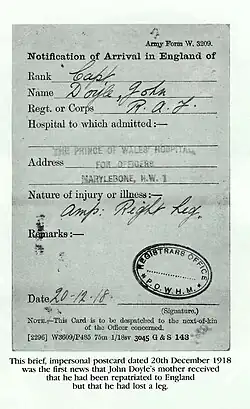 Army Form W. 3209.
Notification of Arrival in England of
Rank Capt.
Name Doyle, John
Regt. or Corps R. A. F.
Hospital to which admitted:—
THE PRINCE OF WALES' HOSPITAL
Address FOR OFFICERS
MARYLEBONE, N.W. 1
Nature of injury or illness:—
Amp: Right Leg.
Remarks:—
REGISTRARS OFFICE
P.O.W.H.M.
Date 20-12-18.
(Signature.)
NOTE.—This Card is to be despatched to the next-of-kin
of the Officer concerned.
[2296] W3609/P485 75m 1/18sv 3045 G & S 143
This brief, impersonal postcard dated 20th December 1918
was the first news that John Doyle's mother received
that he had been repatriated to England
but that he had lost a leg.